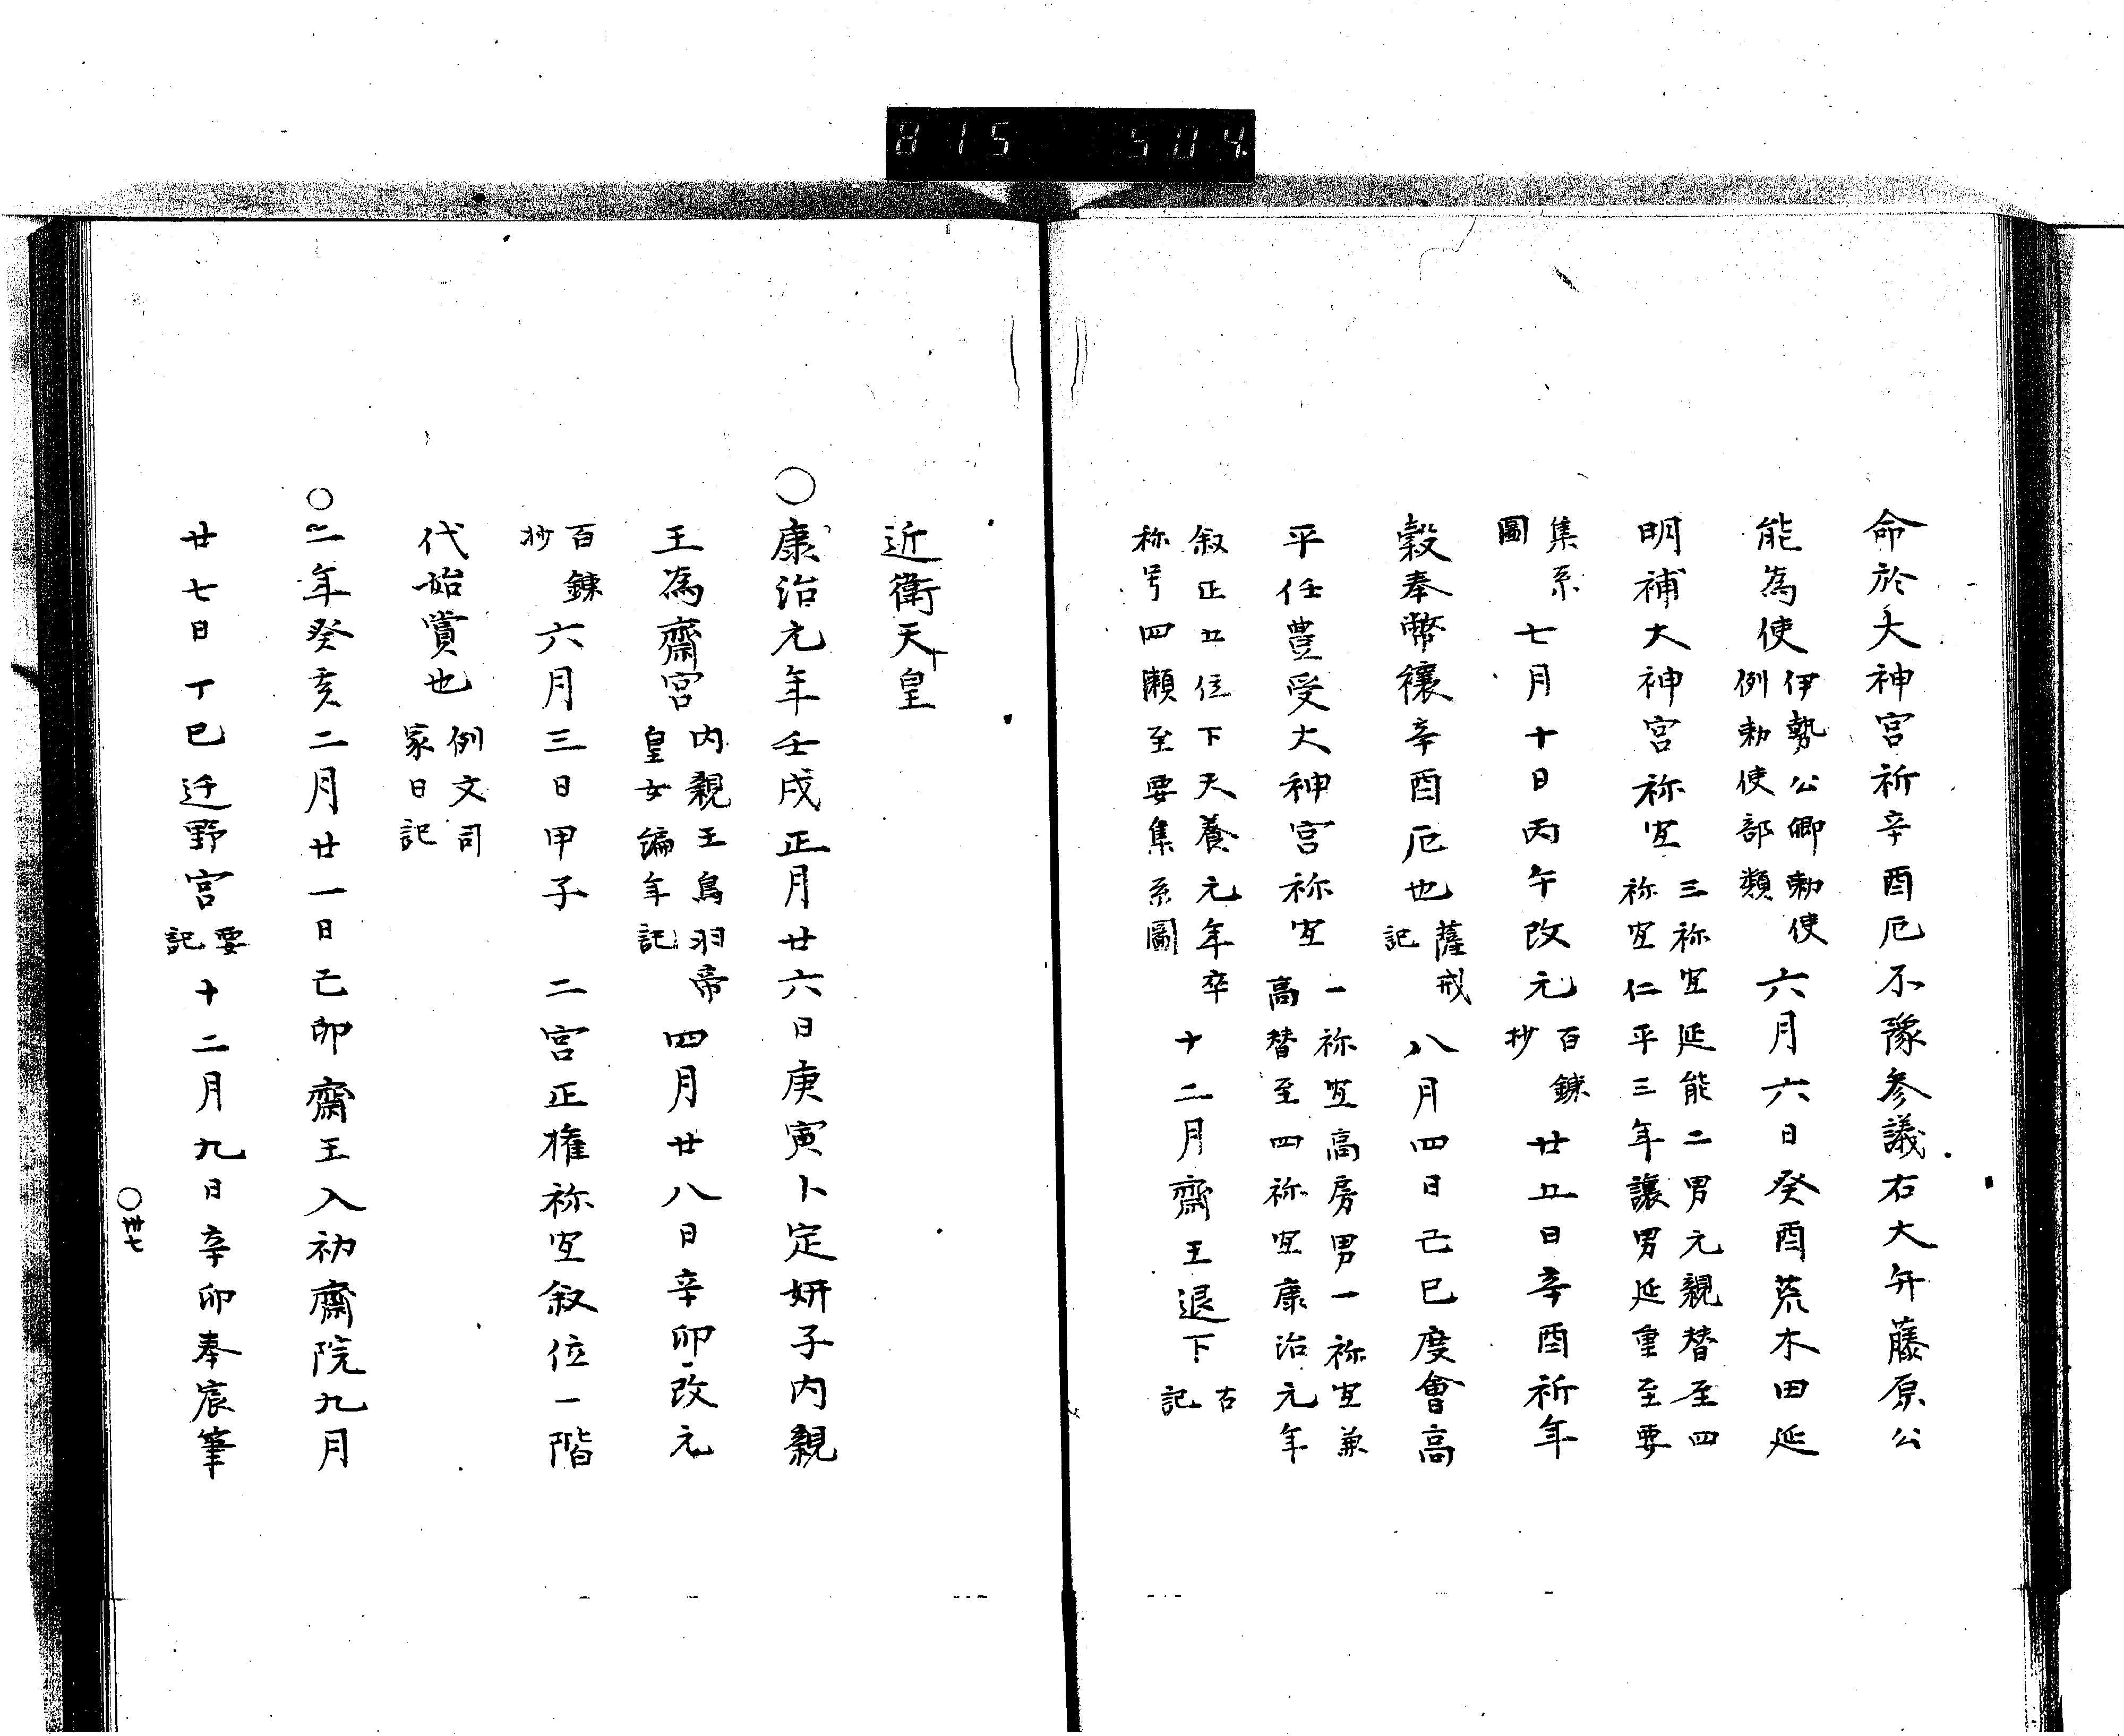 815 504
命於大神宮祈辛酉厄不豫参議右大弁藤原公
能為使伊勢公卿勅使例勅使部類六月六日癸酉荒木田延
明補大神宮祢宜三祢宜延能二男元親替至四祢宜仁平三年讓男延重至要
集系圖七月十日丙午改元百錬抄廿五日辛酉祈年
穀奉幣禳辛酉厄也薩戒記八月四日己巳度會高
平任豊受大神宮祢宜一祢宜高房男一祢宜兼高替至四祢宜康治元年
叙正五位下天養元年卒称号四瀬至要集系圖十二月齋王退下古記
近衛天皇
○康治元年壬戌正月廿六日庚寅卜定妍子内親
王為齋宮内親王鳥羽帝皇女編年記四月廿八日辛卯改元
百錬抄六月三日甲子 二宮正権祢宜叙位一階
代始賞也例文司家日記
○二年癸亥二月廿一日己卯齋王入初齋院九月
廿七日丁巳迁野宮要記十二月九日辛卯奉宸筆
○卅七